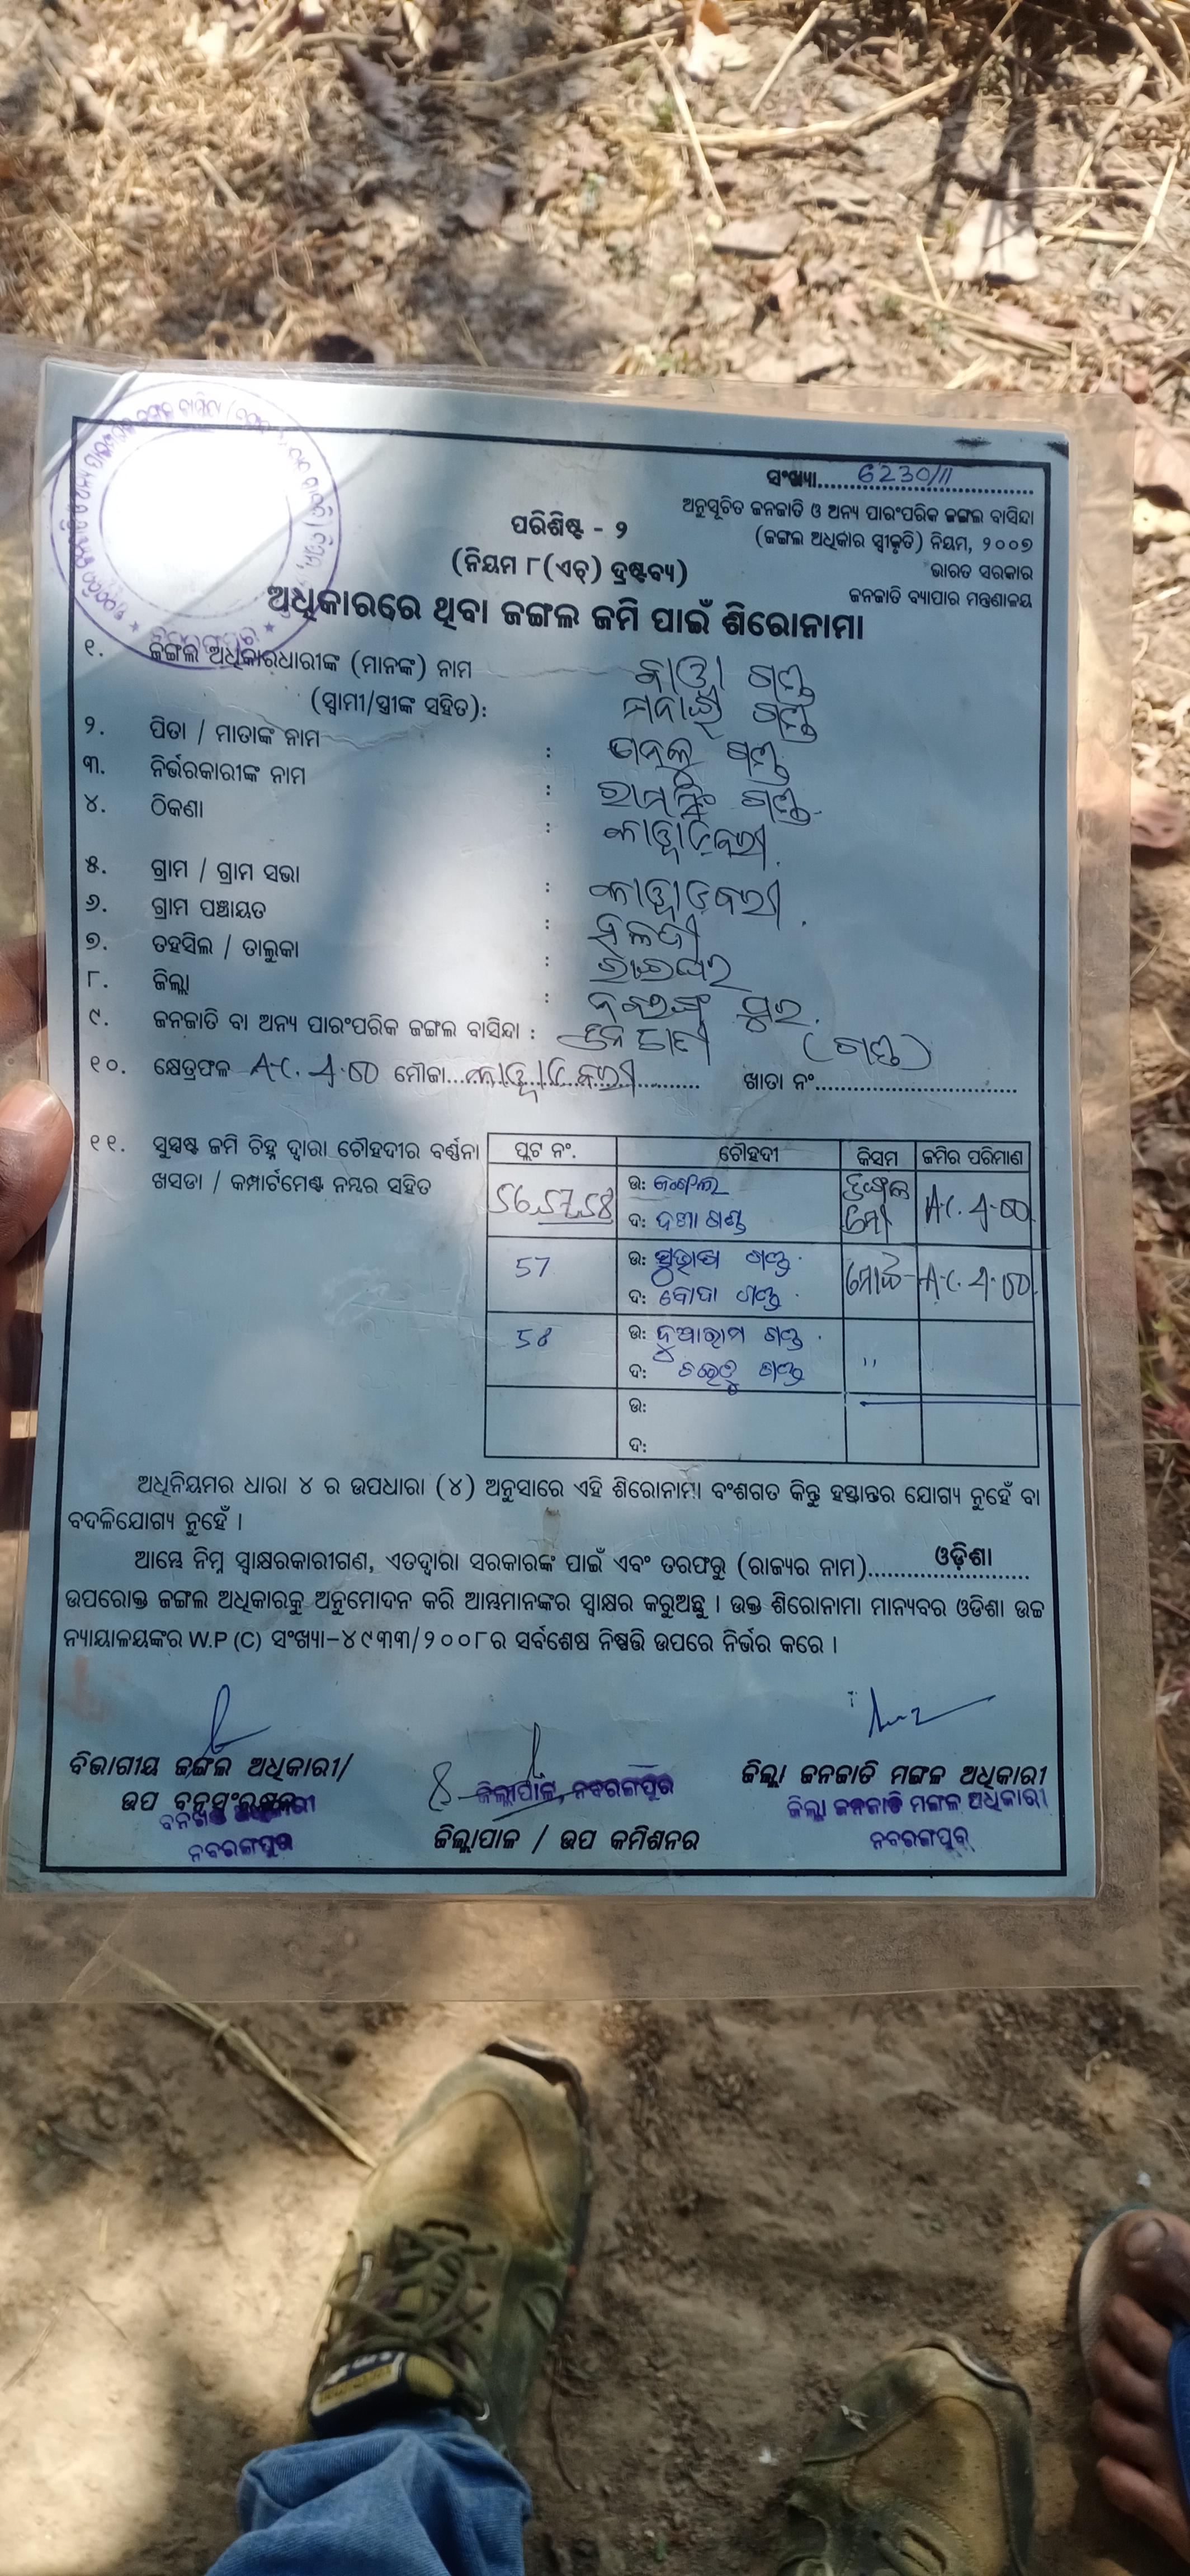 ସଂଖ୍ୟା 6230/11
ଅନୁସୂଚିତ ଜନଜାତି ଓ ଅନ୍ୟ ପାରଂପରିକ ଜଙ୍ଗଲ ବାସିନ୍ଦା
(ଜଙ୍ଗଲ ଅଧିକାର ସ୍ୱୀକୃତି) ନିୟମ, ୨୦୦୭
ଭାରତ ସରକାର
ଜନଜାତି ବ୍ୟାପାର ମନ୍ତ୍ରଣାଳୟ
ପରିଶିଷ୍ଟ - ୨
(ନିୟମ ୮(ଏଚ୍) ଦ୍ରଷ୍ଟବ୍ୟ)
ଅଧିକାରରେ ଥିବା ଜଙ୍ଗଲ ଜମି ପାଇଁ ଶିରୋନାମା
୧. ଜଙ୍ଗଲ ଅଧିକାରଧାରୀଙ୍କ (ମାନଙ୍କ) ନାମ ଗଣ୍ଡ
(ସ୍ୱାମୀ/ସ୍ତ୍ରୀଙ୍କ ସହିତ): ଗଣ୍ଡ
୨. ପିତା / ମାତାଙ୍କ ନାମ : ଗଣ୍ଡ
୩. ନିର୍ଭରକାରୀଙ୍କ ନାମ : ଗଣ୍ଡ
୪. ଠିକଣା :
୫. ଗ୍ରାମ / ଗ୍ରାମ ସଭା :
୬. ଗ୍ରାମ ପଞ୍ଚାୟତ : ହଳଦୀ
୭. ତହସିଲ / ତାଲୁକା : ରାଇଘର
୮. ଜିଲ୍ଲା : ନବରଙ୍ଗ ପୁର.
୯. ଜନଜାତି ବା ଅନ୍ୟ ପାରଂପରିକ ଜଙ୍ଗଲ ବାସିନ୍ଦା : (ଗଣ୍ଡ)
୧୦. କ୍ଷେତ୍ରଫଳ ମୌଜା ଖାତା ନଂ
୧୧. ସୁସ୍ପଷ୍ଟ ଜମି ଚିହ୍ନ ଦ୍ୱାରା ଚୌହଦୀର ବର୍ଣ୍ଣନା
ଖସଡା / କମ୍ପାର୍ଟମେଣ୍ଟ ନମ୍ବର ସହିତ
ପ୍ଲଟ ନଂ. ଚୌହଦୀ କିସମ ଜମିର ପରିମାଣ
56,57,58 ଉ: ଜଙ୍ଗଲ
ଦ: ଗଣ୍ଡ
57 ଉ: ସୁଭାଷ ଗଣ୍ଡ
ଦ: ଗଣ୍ଡ
58 ଉ: ଗଣ୍ଡ "
ଦ: ଗଣ୍ଡ
ଉ:
ଦ:
ଅଧିନିୟମର ଧାରା ୪ ର ଉପଧାରା (୪) ଅନୁସାରେ ଏହି ଶିରୋନାମା ବଂଶଗତ କିନ୍ତୁ ହସ୍ତାନ୍ତର ଯୋଗ୍ୟ ନୁହେଁ ବା
ବଦଳିଯୋଗ୍ୟ ନୁହେଁ ।
ଆମ୍ଭେ ନିମ୍ନ ସ୍ୱାକ୍ଷରକାରୀଗଣ, ଏତଦ୍ୱାରା ସରକାରଙ୍କ ପାଇଁ ଏବଂ ତରଫରୁ (ରାଜ୍ୟର ନାମ) ଓଡ଼ିଶା
ଉପରୋକ୍ତ ଜଙ୍ଗଲ ଅଧିକାରକୁ ଅନୁମୋଦନ କରି ଆମ୍ଭମାନଙ୍କର ସ୍ୱାକ୍ଷର କରୁଅଛୁ । ଉକ୍ତ ଶିରୋନାମା ମାନ୍ୟବର ଓଡିଶା ଉଚ୍ଚ
ନ୍ୟାୟାଳୟଙ୍କର W.P (C) ସଂଖ୍ୟା-୪୯୩୩/୨୦୦୮ର ସର୍ବଶେଷ ନିଷ୍ପତ୍ତି ଉପରେ ନିର୍ଭର କରେ ।
ବିଭାଗୀୟ ଜଙ୍ଗଲ ଅଧିକାରୀ/
ଉପ ବନସଂରକ୍ଷକ
ନବରଙ୍ଗପୁର
ଜିଲ୍ଲାପାଳ, ନବରଙ୍ଗପୁର
ଜିଲ୍ଲାପାଳ / ଉପ କମିଶନର
ଜିଲ୍ଲା ଜନଜାତି ମଙ୍ଗଳ ଅଧିକାରୀ
ଜିଲ୍ଲା ଜନଜାତି ମଙ୍ଗଳ ଅଧିକାରୀ
ନବରଙ୍ଗପୁର